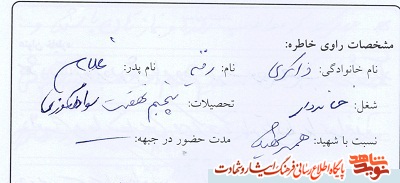 مشخصات راوی خاطره:
نام خانوادگی: ذاکری نام: رقیه نام پدر: غلام
شغل: خانه دار تحصیلات: پنجم نهضت سوادآموزی
نسبت با شهید: همسر شهید مدت حضور در جبهه: ــــ
نوید شاهد
پایگاه اطلاع رسانی فرهنگ ایثار و شهادت